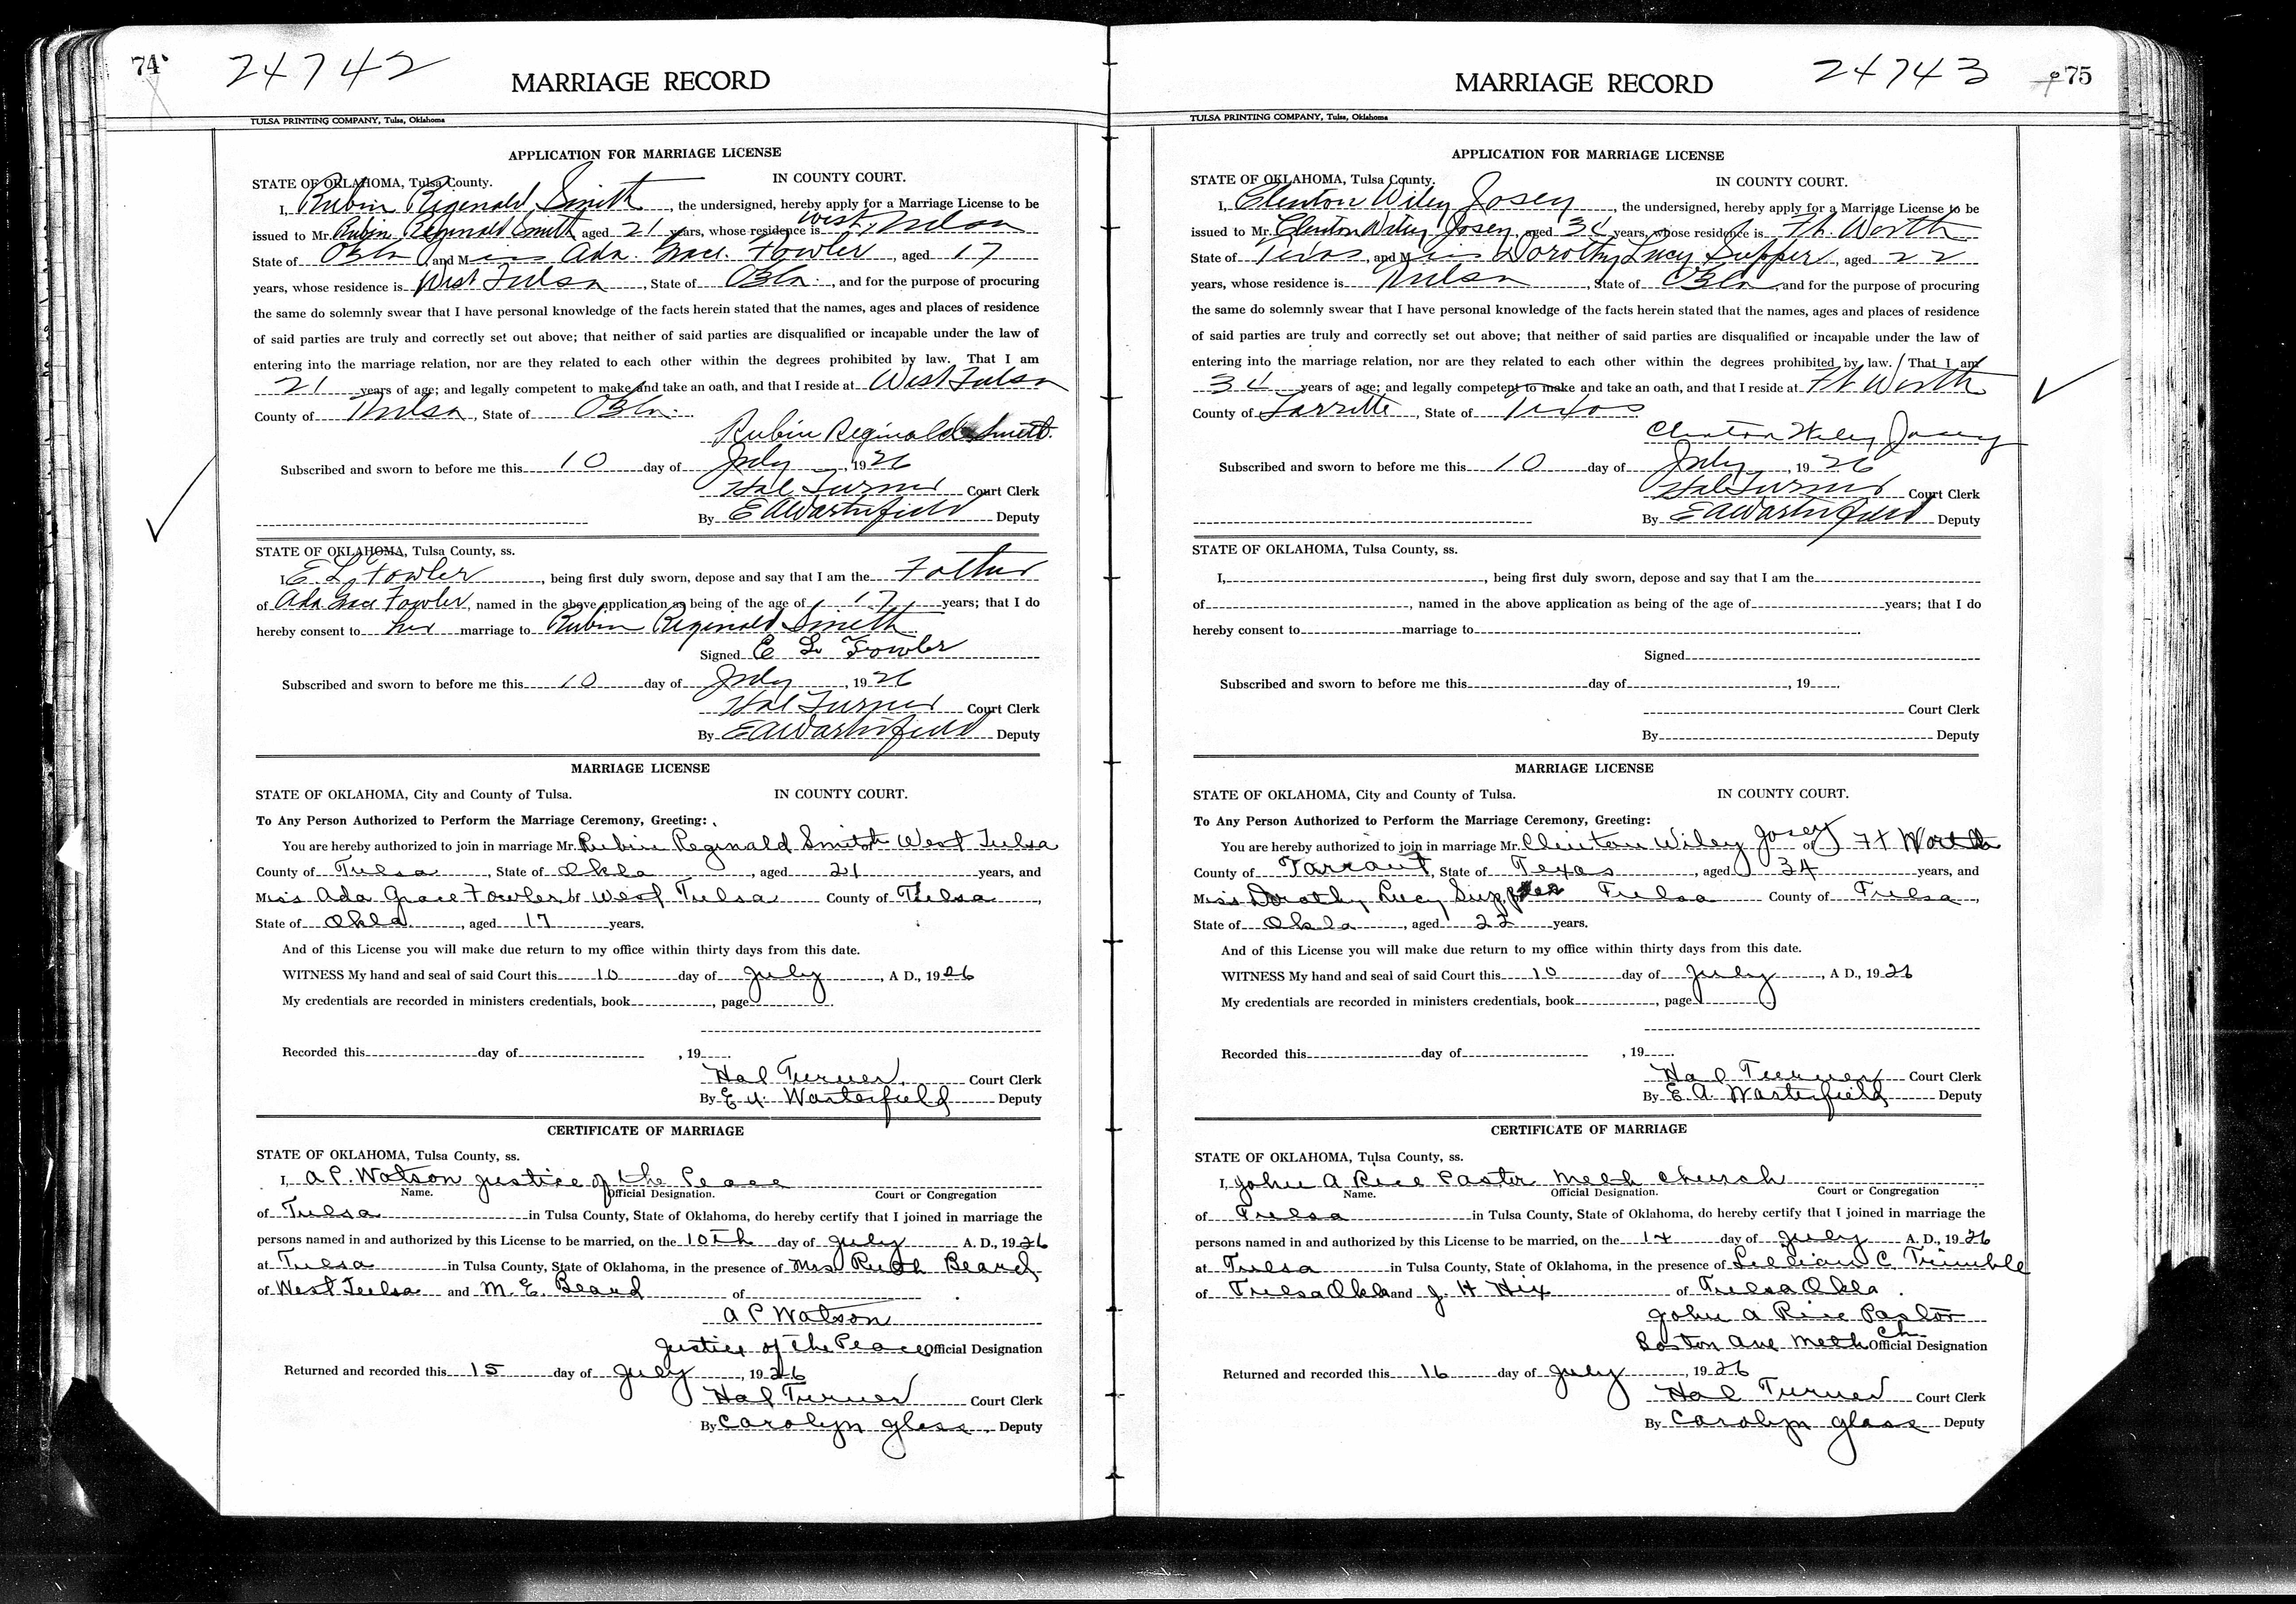 74
24742
MARRIAGE RECORD
TULSA PRINTING COMPANY, Tulsa, Oklahoma
APPLICATION FOR MARRIAGE LICENSE
STATE OF OKLAHOMA, Tulsa County. IN COUNTY COURT.
I, Rubin Reginald Smith, the undersigned, hereby apply for a Marriage License to be
issued to Mr. Rubin Reginald Smith aged 21 years, whose residence is West Tulsa
State of Okla, and Miss Ada Grace Fowler, aged 17
years, whose residence is West Tulsa, State of Okla., and for the purpose of procuring
the same do solemnly swear that I have personal knowledge of the facts herein stated that the names, ages and places of residence
of said parties are truly and correctly set out above; that neither of said parties are disqualified or incapable under the law of
entering into the marriage relation, nor are they related to each other within the degrees prohibited by law. That I am
21 years of age; and legally competent to make and take an oath, and that I reside at West Tulsa
County of Tulsa, State of Okla.
Rubin Reginald Smith.
Subscribed and sworn to before me this 10 day of July, 1926
Hal Turner Court Clerk
By E A Warterfield Deputy
STATE OF OKLAHOMA, Tulsa County, ss.
I, E. L. Fowler, being first duly sworn, depose and say that I am the Father
of Ada Grace Fowler, named in the above application as being of the age of 17 years; that I do
hereby consent to her marriage to Rubin Reginald Smith
Signed E L Fowler
Subscribed and sworn to before me this 10 day of July, 1926
Hal Turner Court Clerk
By E A Warterfield Deputy
MARRIAGE LICENSE
STATE OF OKLAHOMA, City and County of Tulsa. IN COUNTY COURT.
To Any Person Authorized to Perform the Marriage Ceremony, Greeting:
You are hereby authorized to join in marriage Mr. Rubin Reginald Smith West Tulsa
County of Tulsa, State of Okla, aged 21 years, and
Miss Ada Grace Fowler of West Tulsa County of Tulsa,
State of Okla., aged 17 years.
And of this License you will make due return to my office within thirty days from this date.
WITNESS My hand and seal of said Court this 10 day of July, A D., 1926
My credentials are recorded in ministers credentials, book, page.
Recorded this day of , 19.
Hal Turner Court Clerk
By E A. Warterfield Deputy
CERTIFICATE OF MARRIAGE
STATE OF OKLAHOMA, Tulsa County, ss.
I, A P. Watson Justice of the Peace
Name. Official Designation. Court or Congregation
of Tulsa in Tulsa County, State of Oklahoma, do hereby certify that I joined in marriage the
persons named in and authorized by this License to be married, on the 10th day of July A. D., 1926
at Tulsa in Tulsa County, State of Oklahoma, in the presence of Mrs Ruth Beard
of West Tulsa and M. E. Beard of
A P Watson
Justice of the Peace Official Designation
Returned and recorded this 15 day of July, 1926
Hal Turner Court Clerk
By Carolyn Glass, Deputy
24743
75
MARRIAGE RECORD
TULSA PRINTING COMPANY, Tulsa, Oklahoma
APPLICATION FOR MARRIAGE LICENSE
STATE OF OKLAHOMA, Tulsa County. IN COUNTY COURT.
I, Clinton Wiley Josey, the undersigned, hereby apply for a Marriage License to be
issued to Mr. Clinton Wiley Josey, aged 34 years, whose residence is Ft. Worth
State of Texas, and Miss Dorothy Lucy Supper, aged 22
years, whose residence is Tulsa, State of Okla and for the purpose of procuring
the same do solemnly swear that I have personal knowledge of the facts herein stated that the names, ages and places of residence
of said parties are truly and correctly set out above; that neither of said parties are disqualified or incapable under the law of
entering into the marriage relation, nor are they related to each other within the degrees prohibited by law. That I am
34 years of age; and legally competent to make and take an oath, and that I reside at Ft. Worth
County of , State of Texas
Clinton Wiley Josey
Subscribed and sworn to before me this 10 day of July, 1926
Hal Turner Court Clerk
By E A Warterfield Deputy
STATE OF OKLAHOMA, Tulsa County, ss.
I, , being first duly sworn, depose and say that I am the
of , named in the above application as being of the age of years; that I do
hereby consent to marriage to .
Signed
Subscribed and sworn to before me this day of , 19.
Court Clerk
By Deputy
MARRIAGE LICENSE
STATE OF OKLAHOMA, City and County of Tulsa. IN COUNTY COURT.
To Any Person Authorized to Perform the Marriage Ceremony, Greeting:
You are hereby authorized to join in marriage Mr. Clinton Wiley Josey of Ft Worth
County of Tarrant, State of Texas, aged 34 years, and
Miss Dorothy Lucy Tulsa County of Tulsa,
State of Okla, aged 22 years.
And of this License you will make due return to my office within thirty days from this date.
WITNESS My hand and seal of said Court this 10 day of July, A D., 1926
My credentials are recorded in ministers credentials, book, page
Recorded this day of , 19.
Hal Turner Court Clerk
By E. A. Warterfield Deputy
CERTIFICATE OF MARRIAGE
STATE OF OKLAHOMA, Tulsa County, ss.
I, John A Rice Pastor Meth Church
Name. Official Designation. Court or Congregation
of Tulsa in Tulsa County, State of Oklahoma, do hereby certify that I joined in marriage the
persons named in and authorized by this License to be married, on the 14 day of July A. D., 1926
at Tulsa in Tulsa County, State of Oklahoma, in the presence of Lillian C. Trimble
of Tulsa Okla and J. H Hix of Tulsa Okla.
John A Rice Pastor
Boston Ave Meth Ch Official Designation
Returned and recorded this 16 day of July, 1926
Hal Turner Court Clerk
By Carolyn Glass Deputy